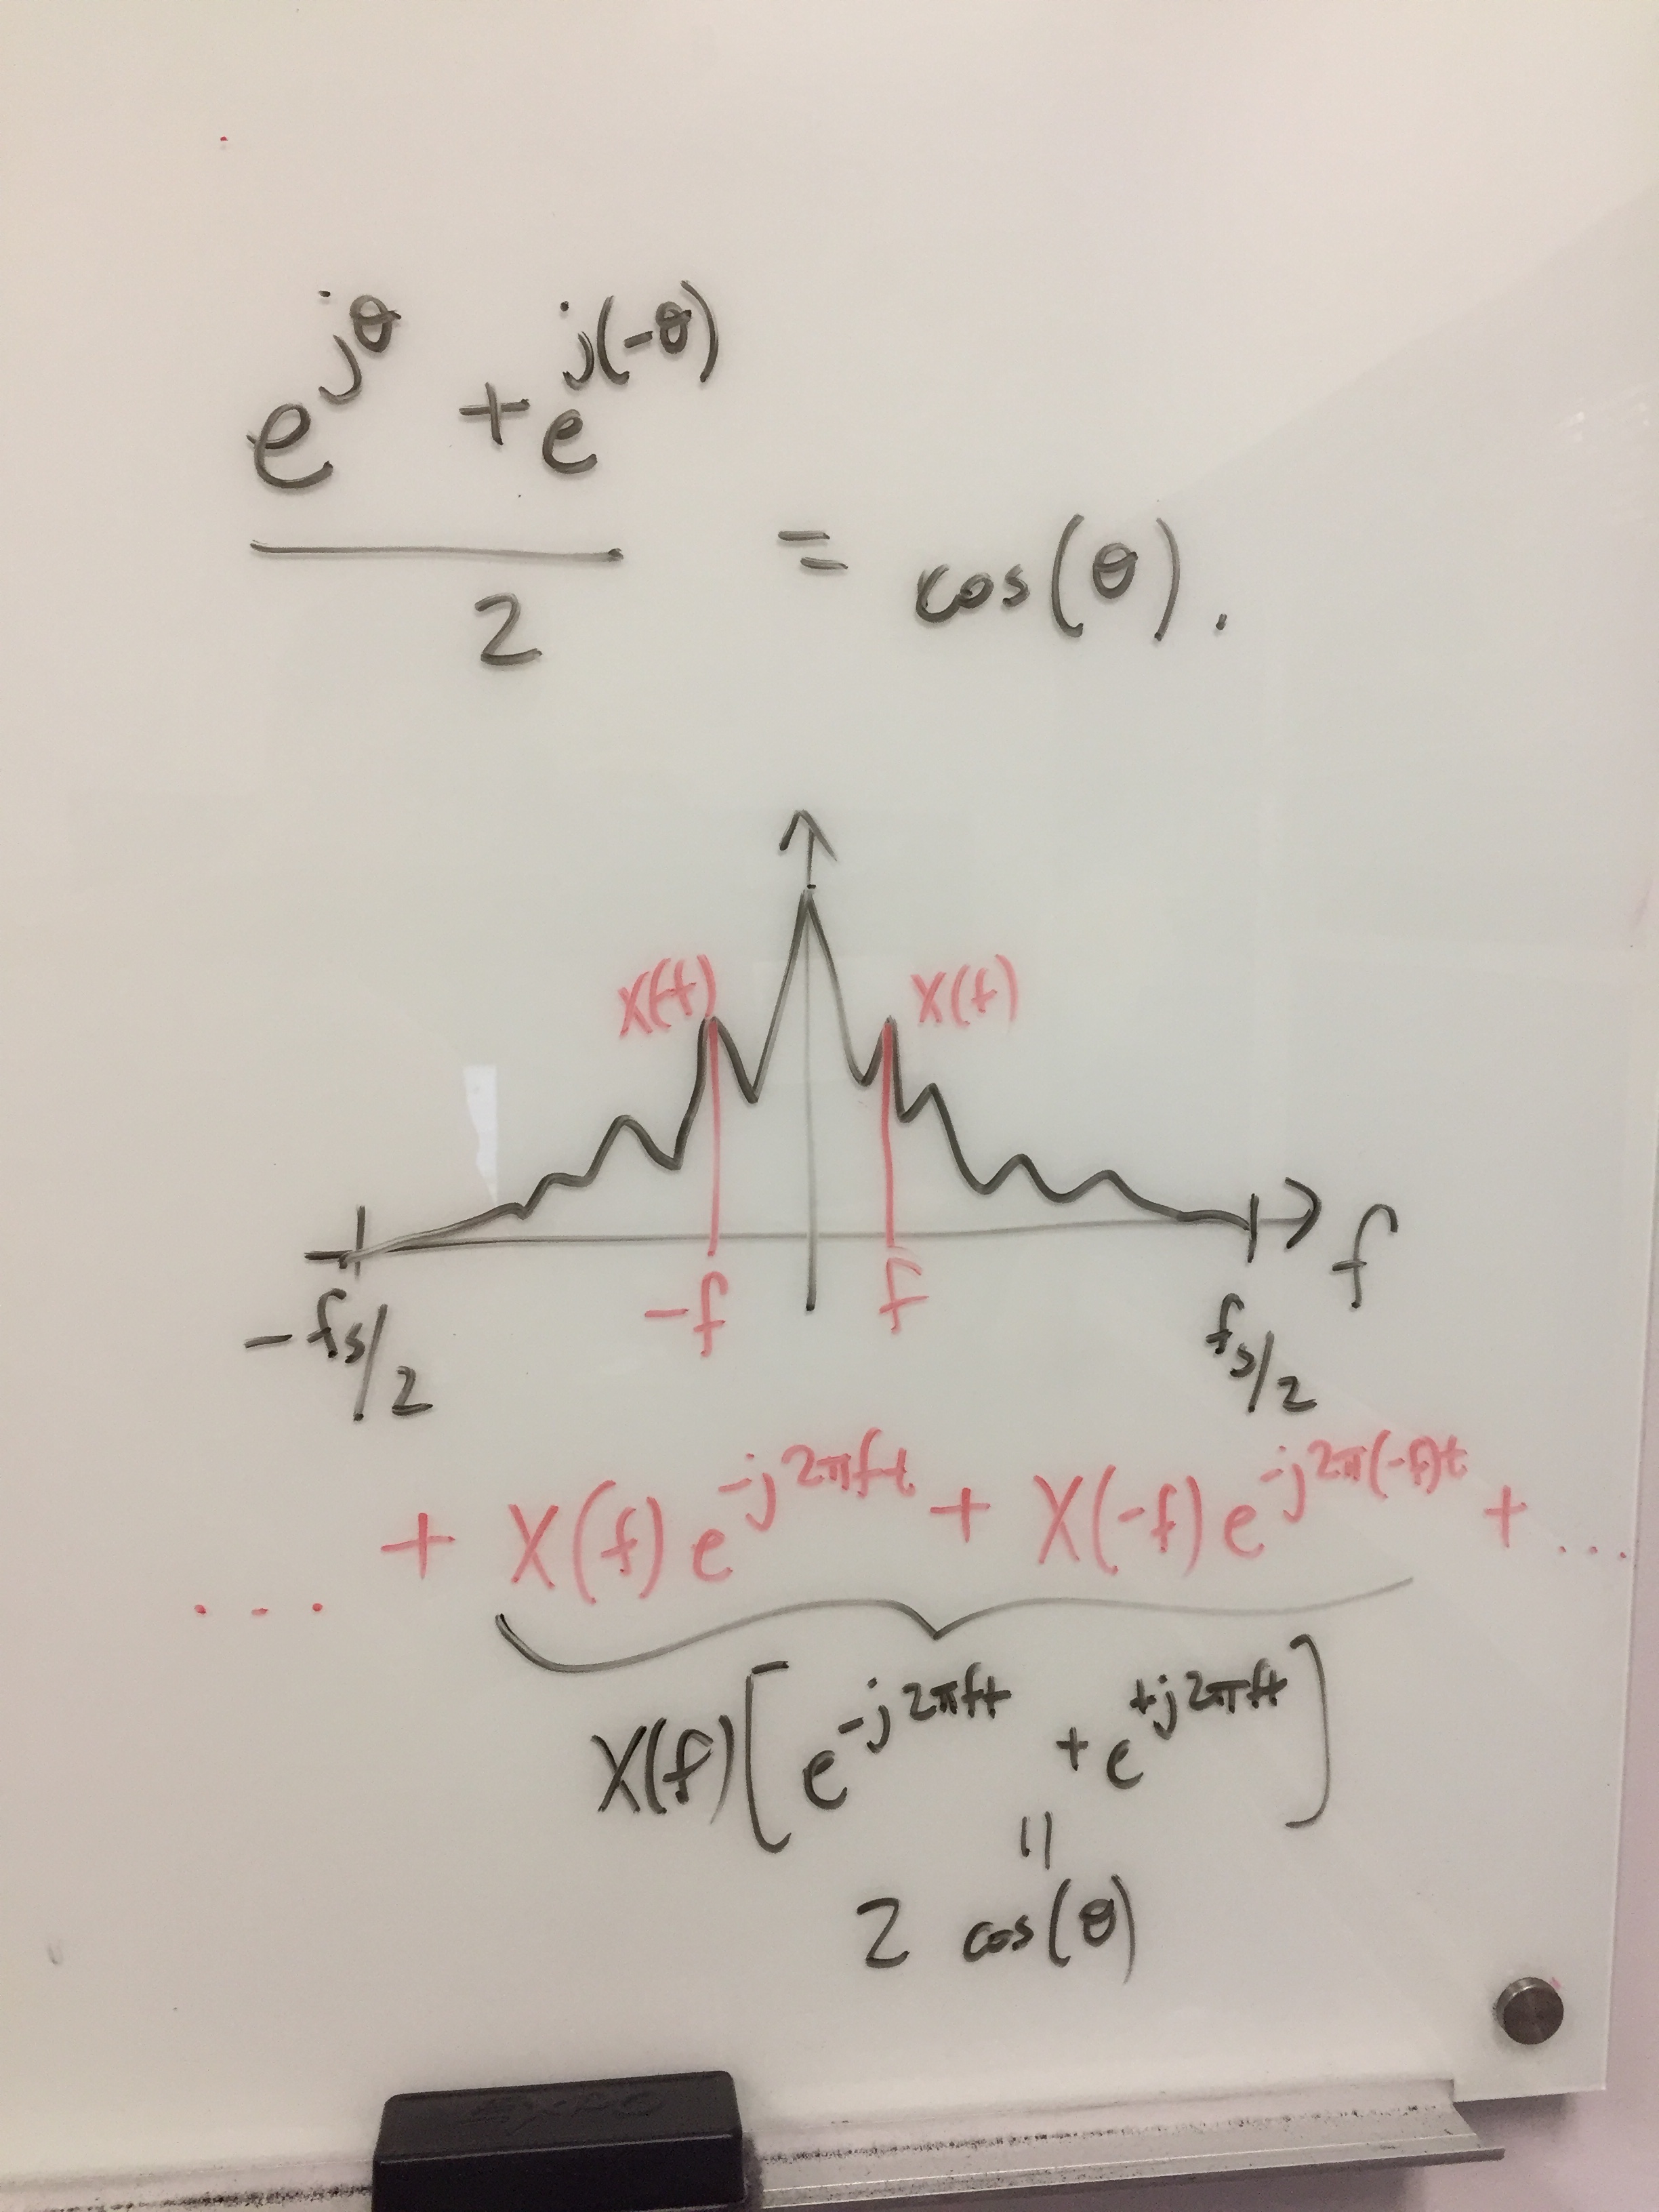 e^{jθ} + e^{j(-θ)}
2
= cos(θ).
X(-f) X(f)
-f f
f
-fs/2 fs/2
... + X(f) e^{-j2πft} + X(-f) e^{-j2π(-f)t} + ...
X(f) [ e^{-j2πft} + e^{+j2πft} ]
=
2 cos(θ)
EXPO